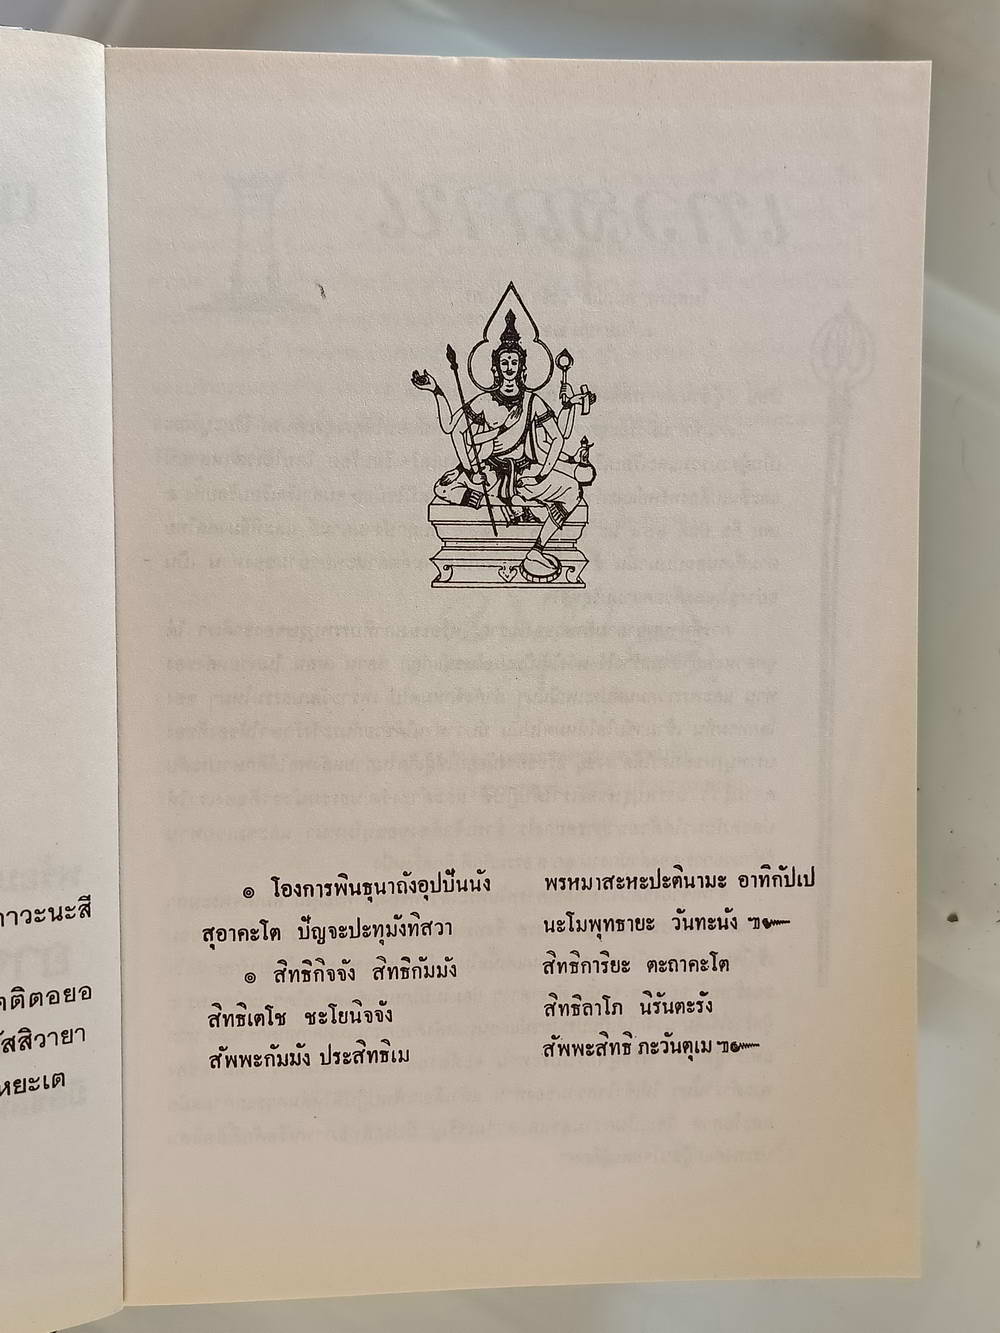 ภาวะนะสี
คติตอยอ
ัสสิวายา
หยะเต
๏ โองการพินธุนาถังอุปปันนัง พรหมาสะหะปะตินามะ อาทิกัปเป
สุอาคะโต ปัญจะปะทุมังทิสวา นะโมพุทธายะ วันทะนัง ๚๛
๏ สิทธิกิจจัง สิทธิกัมมัง สิทธิการิยะ ตะถาคะโต
สิทธิเตโช ชะโยนิจจัง สิทธิลาโภ นิรันตะรัง
สัพพะกัมมัง ประสิทธิเม สัพพะสิทธิ ภะวันตุเม ๚๛